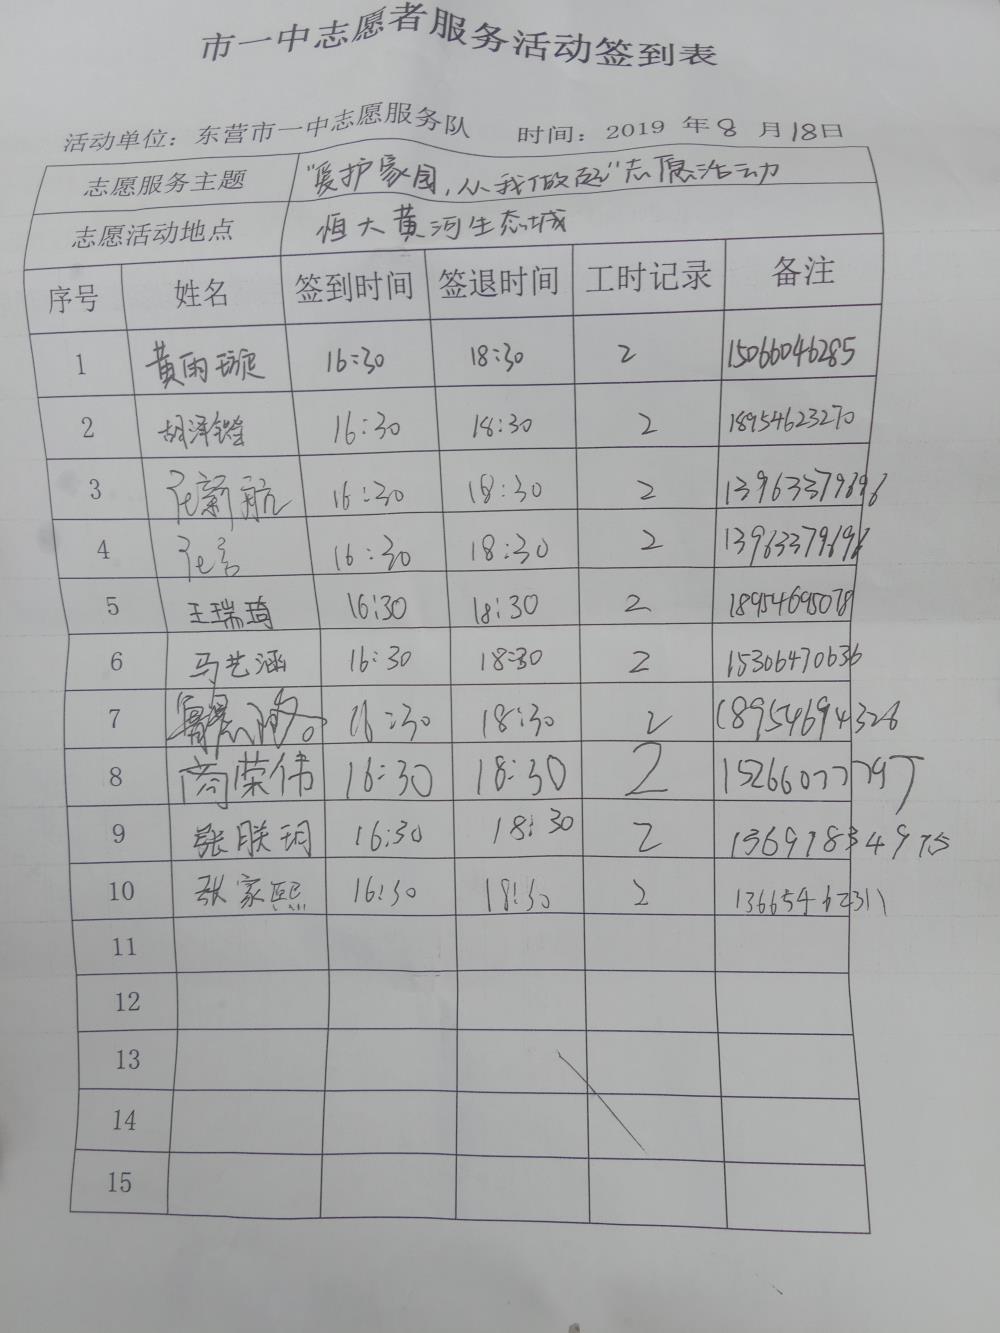 市一中志愿者服务活动签到表
活动单位：东营市一中志愿服务队 时间：2019 年 8 月 18日
志愿服务主题 “爱护家园，从我做起”志愿活动
志愿活动地点 恒大黄河生态城
序号 姓名 签到时间 签退时间 工时记录 备注
1 黄雨璇 16:30 18:30 2 15066046285
2 胡泽锴 16:30 18:30 2 18954623270
3 张新航 16:30 18:30 2 13963379696
4 16:30 18:30 2 13963379696
5 王瑞琦 16:30 18:30 2 18954695078
6 马艺涵 16:30 18:30 2 15306470636
7 16:30 18:30 2 18954694326
8 商荣伟 16:30 18:30 2 15266077797
9 张朕珂 16:30 18:30 2 13697834975
10 张家熙 16:30 18:30 2 13665462311
11
12
13
14
15